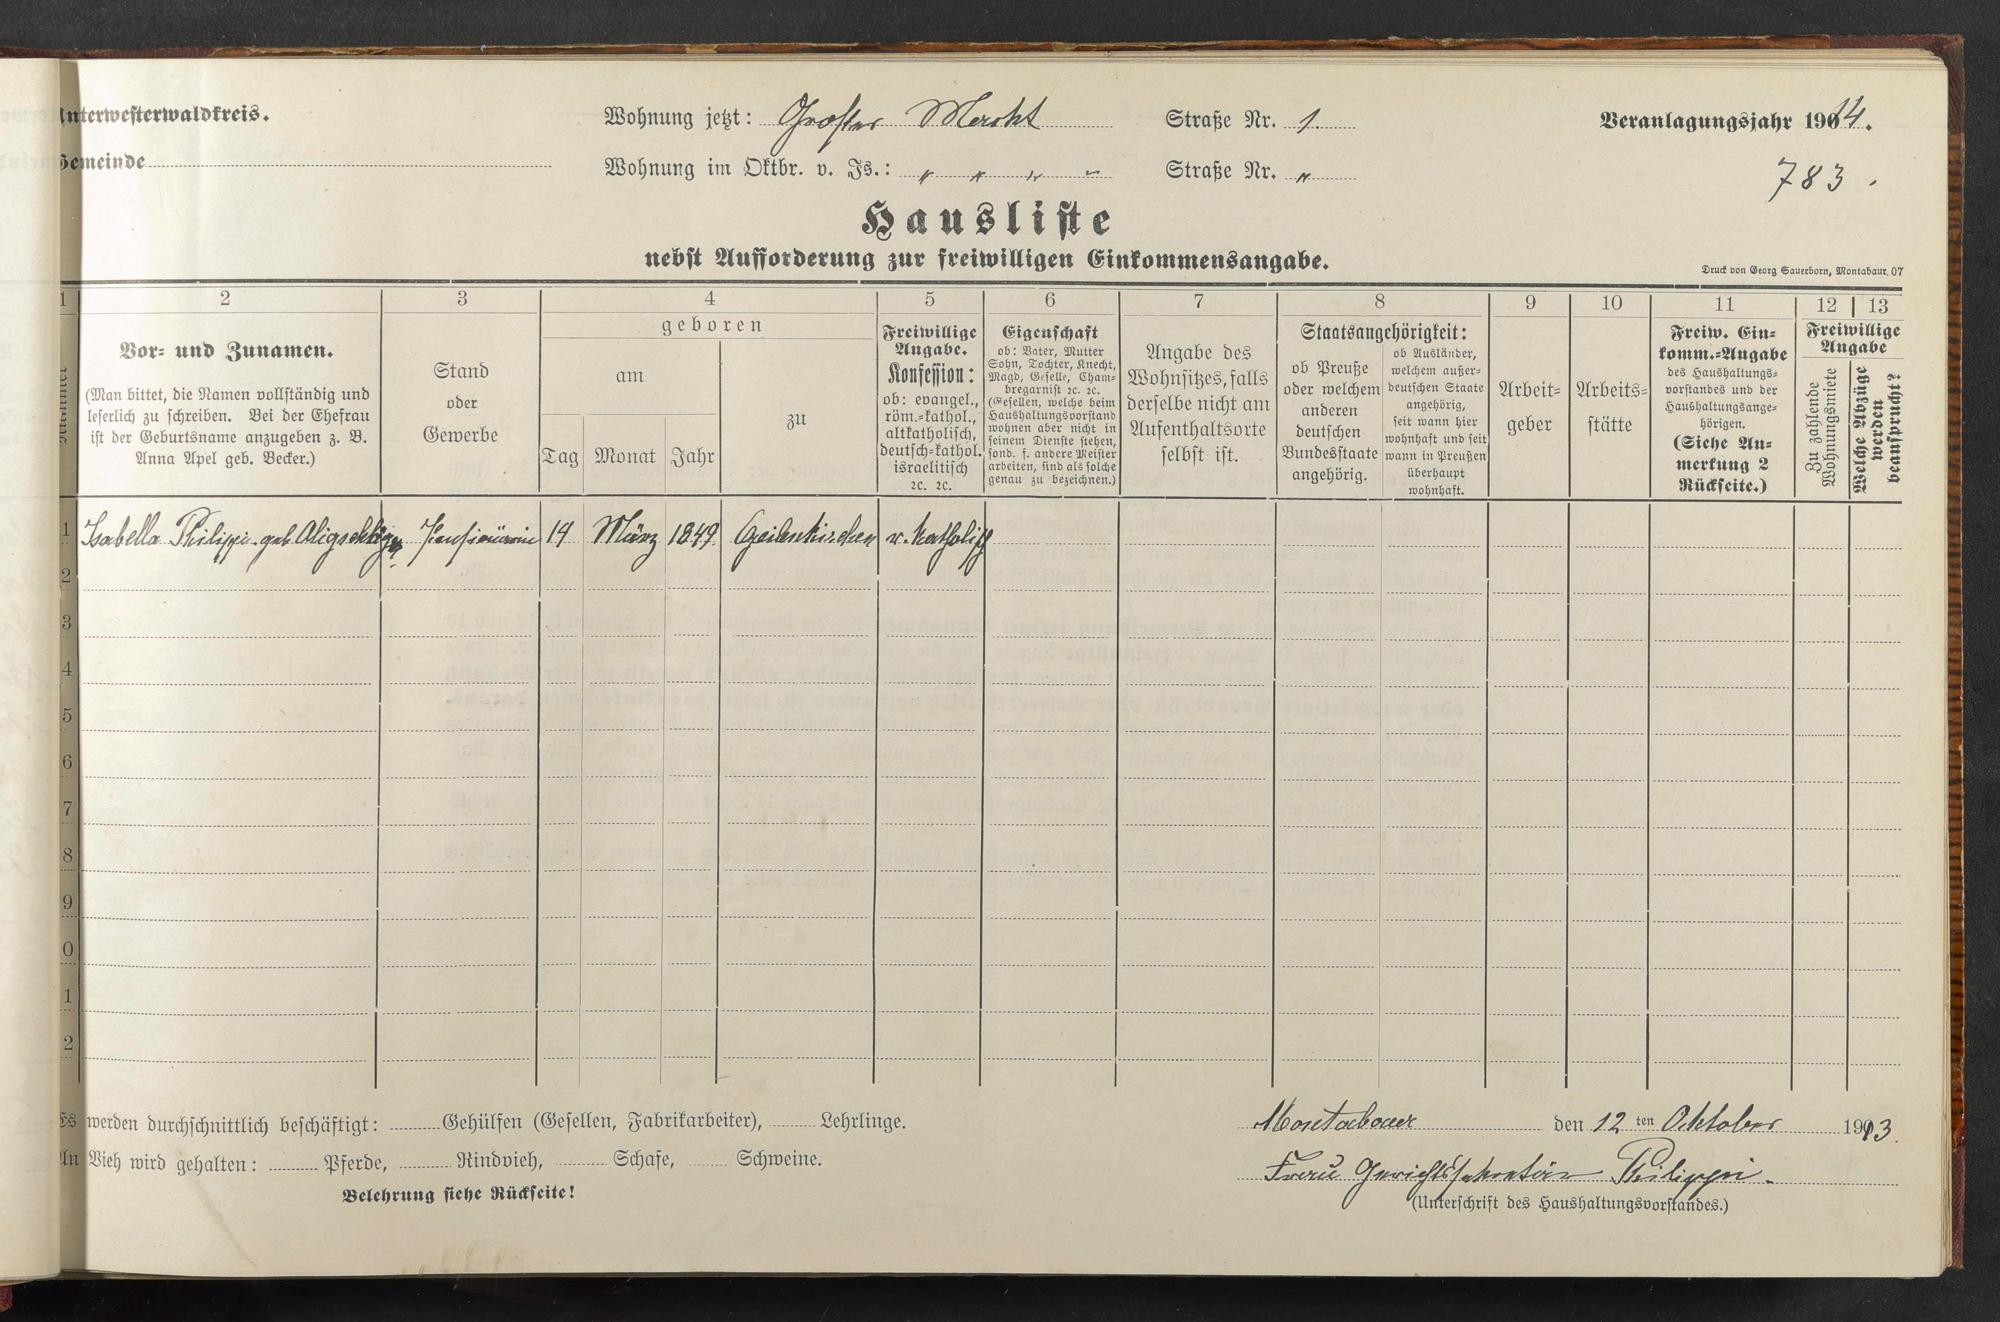 Unterwesterwaldkreis.
Wohnung jetzt: Großer Markt Straße Nr. 1.
Veranlagungsjahr 1914.
Gemeinde
Wohnung im Oktbr. v. Js.: " " " " Straße Nr. "
783.
Hausliste
nebst Aufforderung zur freiwilligen Einkommensangabe.
Druck von Georg Sauerborn, Montabaur. 07
1 2 3 4 5 6 7 8 9 10 11 12 13
Vor- und Zunamen.
(Man bittet, die Namen vollständig und
leserlich zu schreiben. Bei der Ehefrau
ist der Geburtsname anzugeben z. B.
Anna Apel geb. Becker.)
Stand
oder
Gewerbe
geboren
am
Tag Monat Jahr
zu
Freiwillige
Angabe.
Konfession:
ob: evangel.,
röm.-kathol.,
altkatholisch,
deutsch-kathol.
israelitisch
2c. 2c.
Eigenschaft
ob: Vater, Mutter
Sohn, Tochter, Knecht,
Magd, Geselle, Cham-
bregarnist 2c. 2c.
(Gesellen, welche beim
Haushaltungsvorstand
wohnen aber nicht in
seinem Dienste stehen,
sond. f. andere Meister
arbeiten, sind als solche
genau zu bezeichnen.)
Angabe des
Wohnsitzes, falls
derselbe nicht am
Aufenthaltsorte
selbst ist.
Staatsangehörigkeit:
ob Preuße
oder welchem
anderen
deutschen
Bundesstaate
angehörig.
ob Ausländer,
welchem außer-
deutschen Staate
angehörig,
seit wann hier
wohnhaft und seit
wann in Preußen
überhaupt
wohnhaft.
Arbeit-
geber
Arbeits-
stätte
Freiw. Ein-
komm.-Angabe
des Haushaltungs-
vorstandes und der
Haushaltungsange-
hörigen.
(Siehe An-
merkung 2
Rückseite.)
Freiwillige
Angabe
Zu zahlende
Wohnungsmiete
Welche Abzüge
werden
beansprucht?
1 Isabella Philippi geb. Oligschläger Pensionärin 14 März 1849. Geilenkirchen r. katholisch
2
3
4
5
6
7
8
9
0
1
2
Es werden durchschnittlich beschäftigt: Gehülfen (Gesellen, Fabrikarbeiter), Lehrlinge.
An Vieh wird gehalten: Pferde, Rindvieh, Schafe, Schweine.
Belehrung siehe Rückseite!
Montabaur den 12 ten Oktober 1913.
Frau Gerichtssekretär Philippi.
(Unterschrift des Haushaltungsvorstandes.)